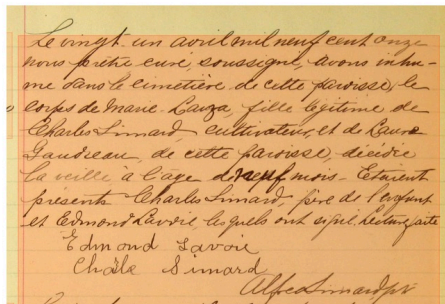 Le vingt-un avril mil neuf cent onze
nous prêtre curé, soussigné, avons inhu-
mé dans le cimetière de cette paroisse, le
corps de Marie-Lauza, fille légitime de
Charles Simard, cultivateur, et de Laure
Gaudreau, de cette paroisse, décédée
la veille, à l'age de neuf mois. Etaient
présents Charles Simard, père de l'enfant
et Edmond Lavoie lesquels ont signé. Lecture faite
Edmond Lavoie
Charle Simard
Alfred Simard ptr